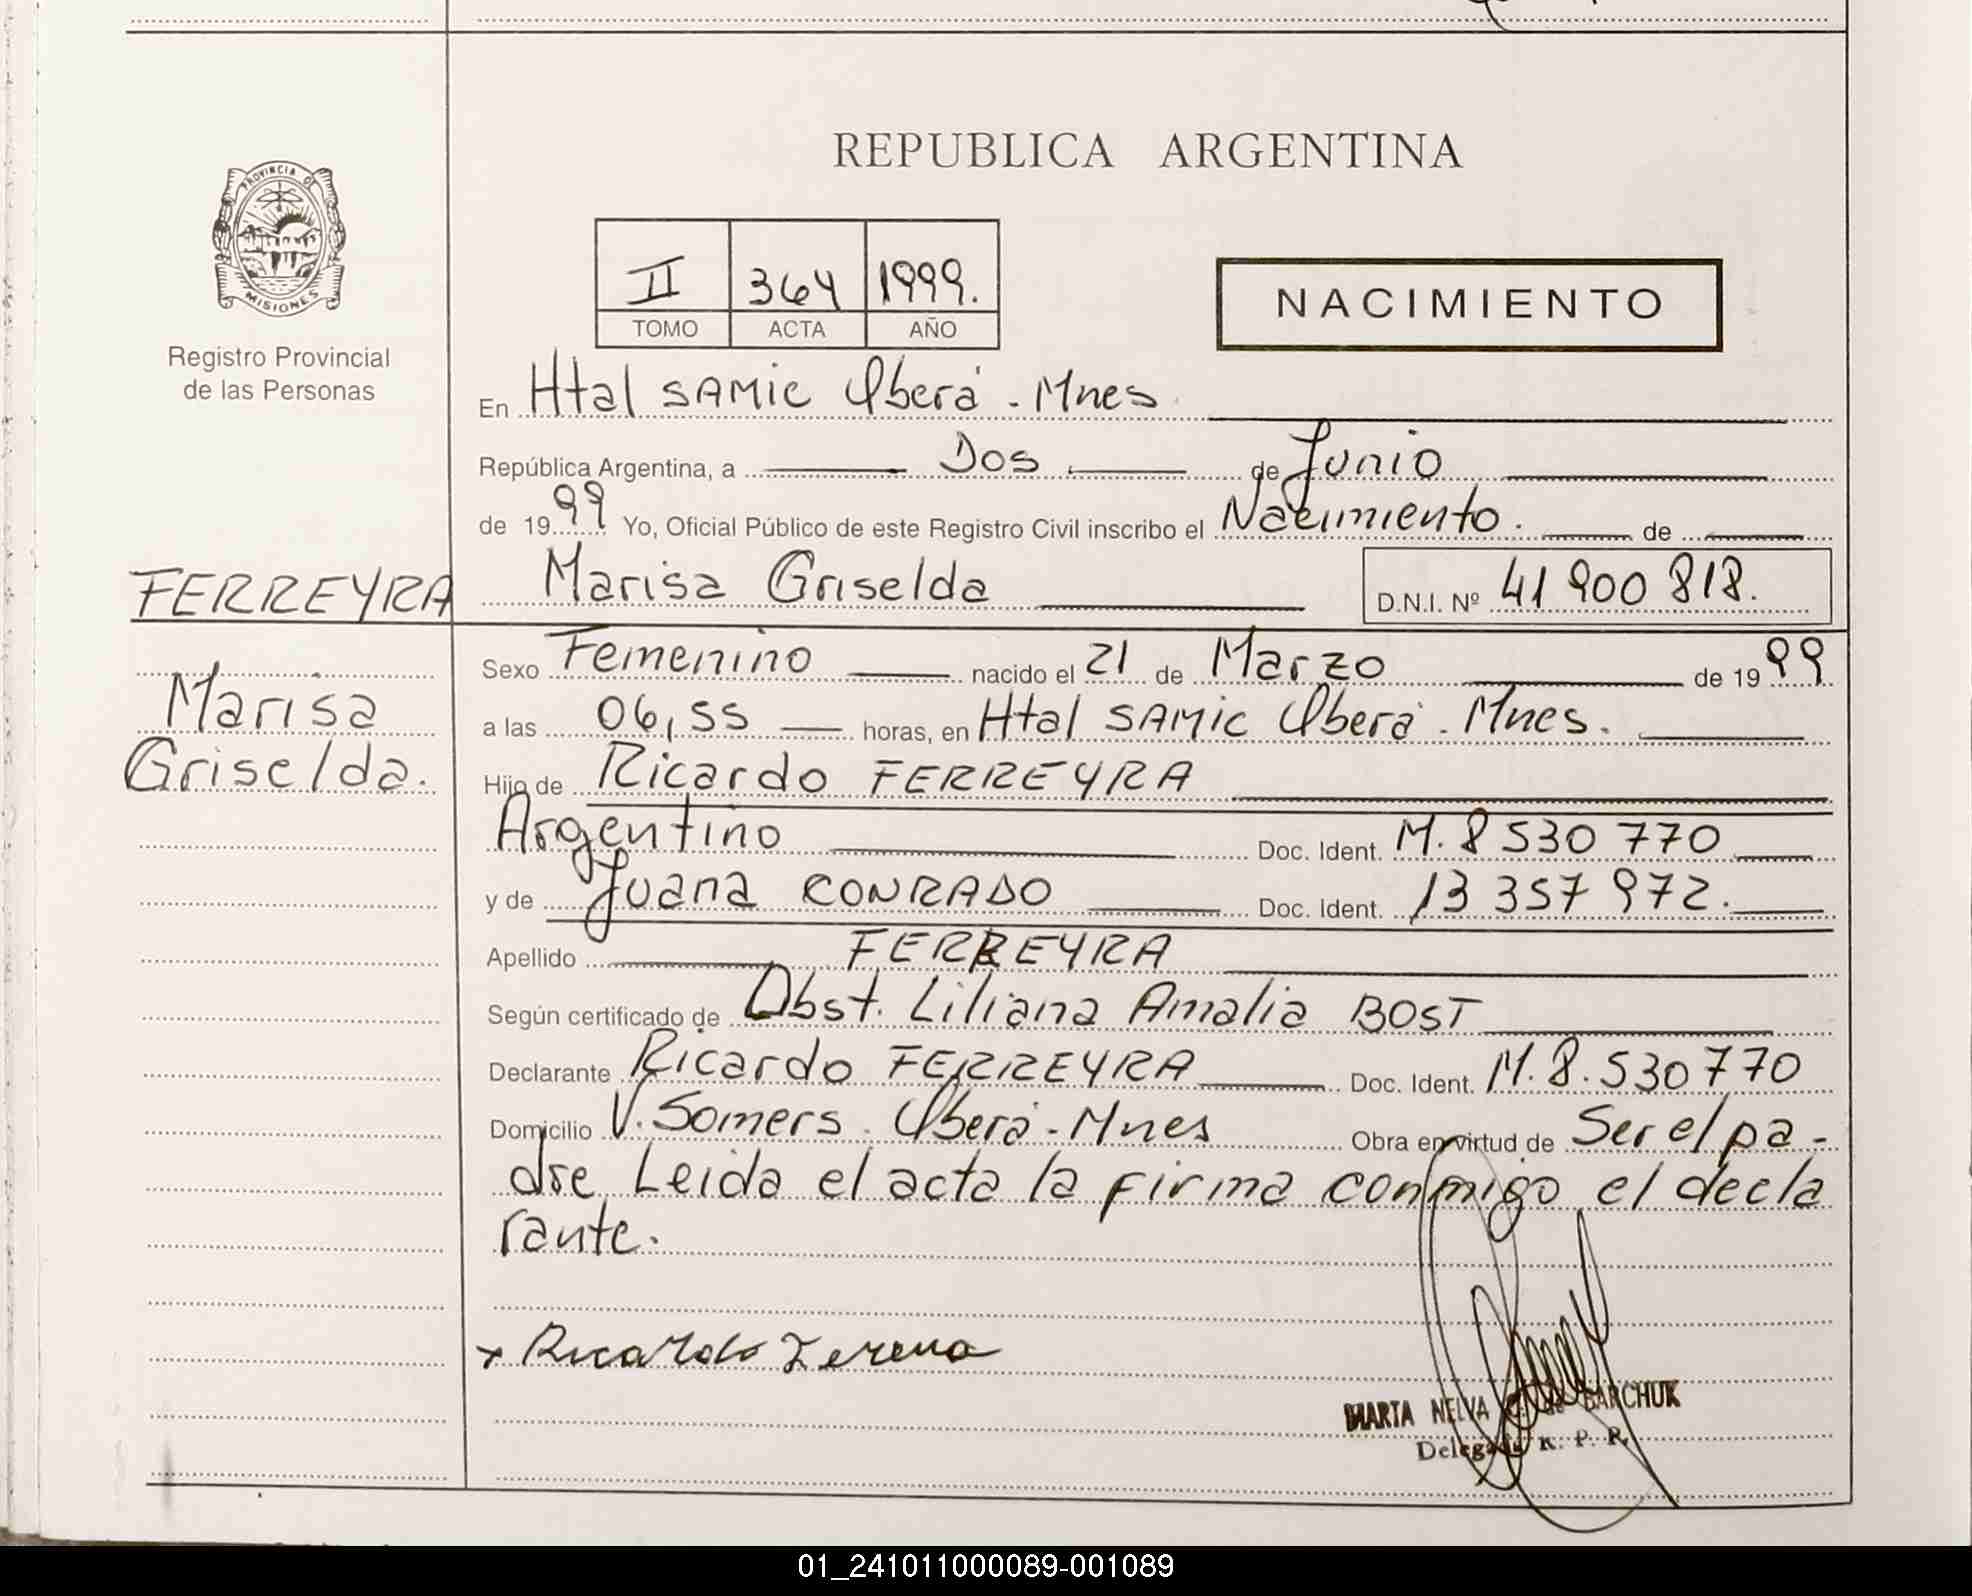 REPUBLICA ARGENTINA
PROVINCIA DE
MISIONES
Registro Provincial
de las Personas
II 364 1999.
TOMO ACTA AÑO
NACIMIENTO
En Htal SAMIC Oberá - Mnes
República Argentina, a Dos de Junio
de 19 99 Yo, Oficial Público de este Registro Civil inscribo el Nacimiento. de
FERREYRA
Marisa Griselda D.N.I. Nº 41 900 818.
Marisa
Griselda.
Sexo Femenino nacido el 21 de Marzo de 19 99
a las 06,55 horas, en Htal SAMIC Oberá - Mnes.
Hijo de Ricardo FERREYRA
Argentino Doc. Ident. M. 8 530 770
y de Juana CONRADO Doc. Ident. 13 357 972.
Apellido FERREYRA
Según certificado de Obst. Liliana Amalia BOST
Declarante Ricardo FERREYRA Doc. Ident. M. 8. 530 770
Domicilio V. Somers. Oberá - Mnes Obra en virtud de Ser el pa-
dre, Leida el acta la firma conmigo el decla
rante.
MARTA NELVA de BARCHUK
Delegada R. P. P.
01_241011000089-001089